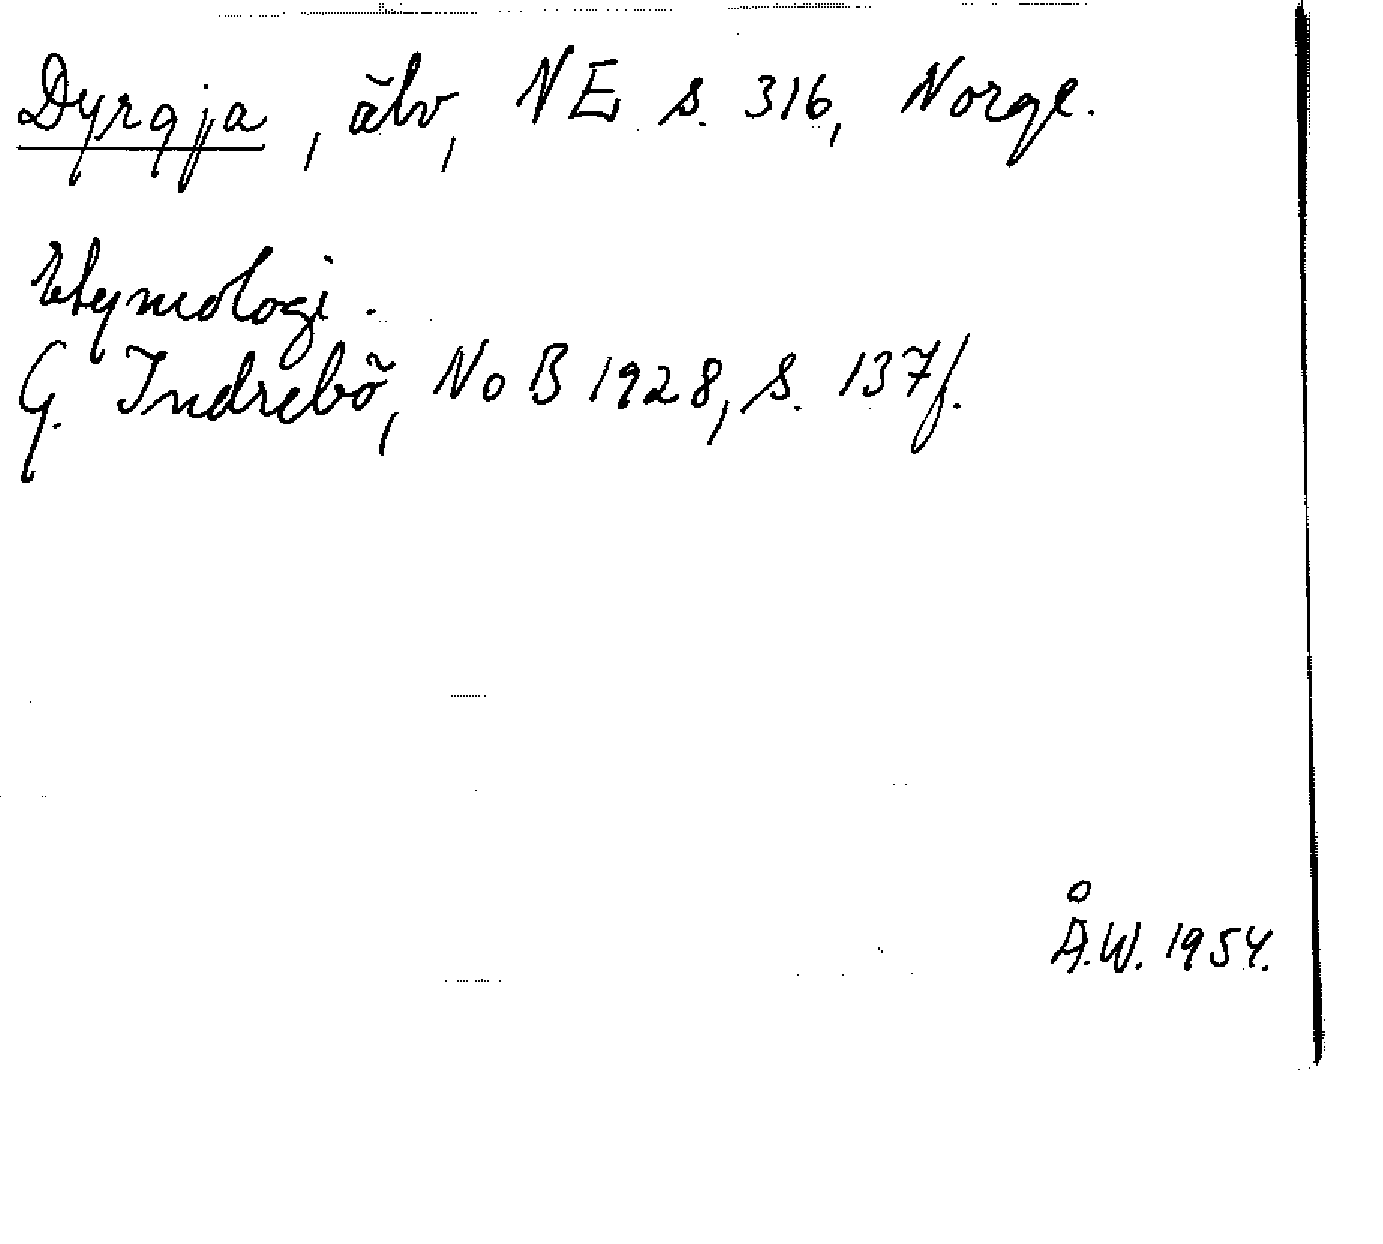 Dyrgja, älv, NE s. 316, Norge.
Etymologi.
G. Indrebö, NoB 1928, s. 137f.
Å.W. 1954.